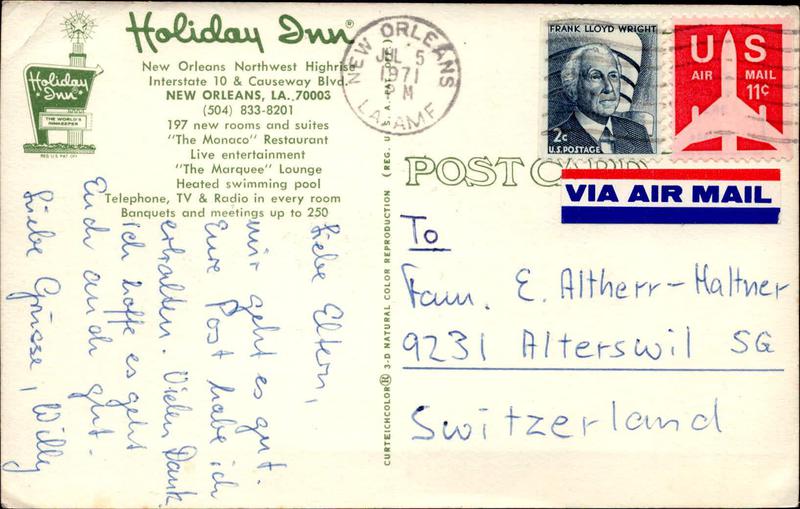 Holiday Inn®
New Orleans Northwest Highrise
Interstate 10 & Causeway Blvd.
NEW ORLEANS, LA. 70003
(504) 833-8201
197 new rooms and suites
"The Monaco" Restaurant
Live entertainment
"The Marquee" Lounge
Heated swimming pool
Telephone, TV & Radio in every room
Banquets and meetings up to 250
Holiday Inn®
THE WORLD'S
INNKEEPER
REG. U.S. PAT. OFF.
Liebe Eltern,
mir geht es gut.
Eure Post habe ich
erhalten. Vielen Dank.
ich hoffe es geht
Euch auch gut.
Liebe Grüsse, Willy
CURTEICHCOLOR® 3-D NATURAL COLOR REPRODUCTION (REG. U.S.A. PAT. OFF.)
NEW ORLEANS
JUL 5
1971
PM
LA. AMF
FRANK LLOYD WRIGHT
2c
U.S. POSTAGE
US
AIR MAIL
11¢
POST CARD
VIA AIR MAIL
To
Fam. E. Altherr-Maltner
9231 Alterswil SG
Switzerland